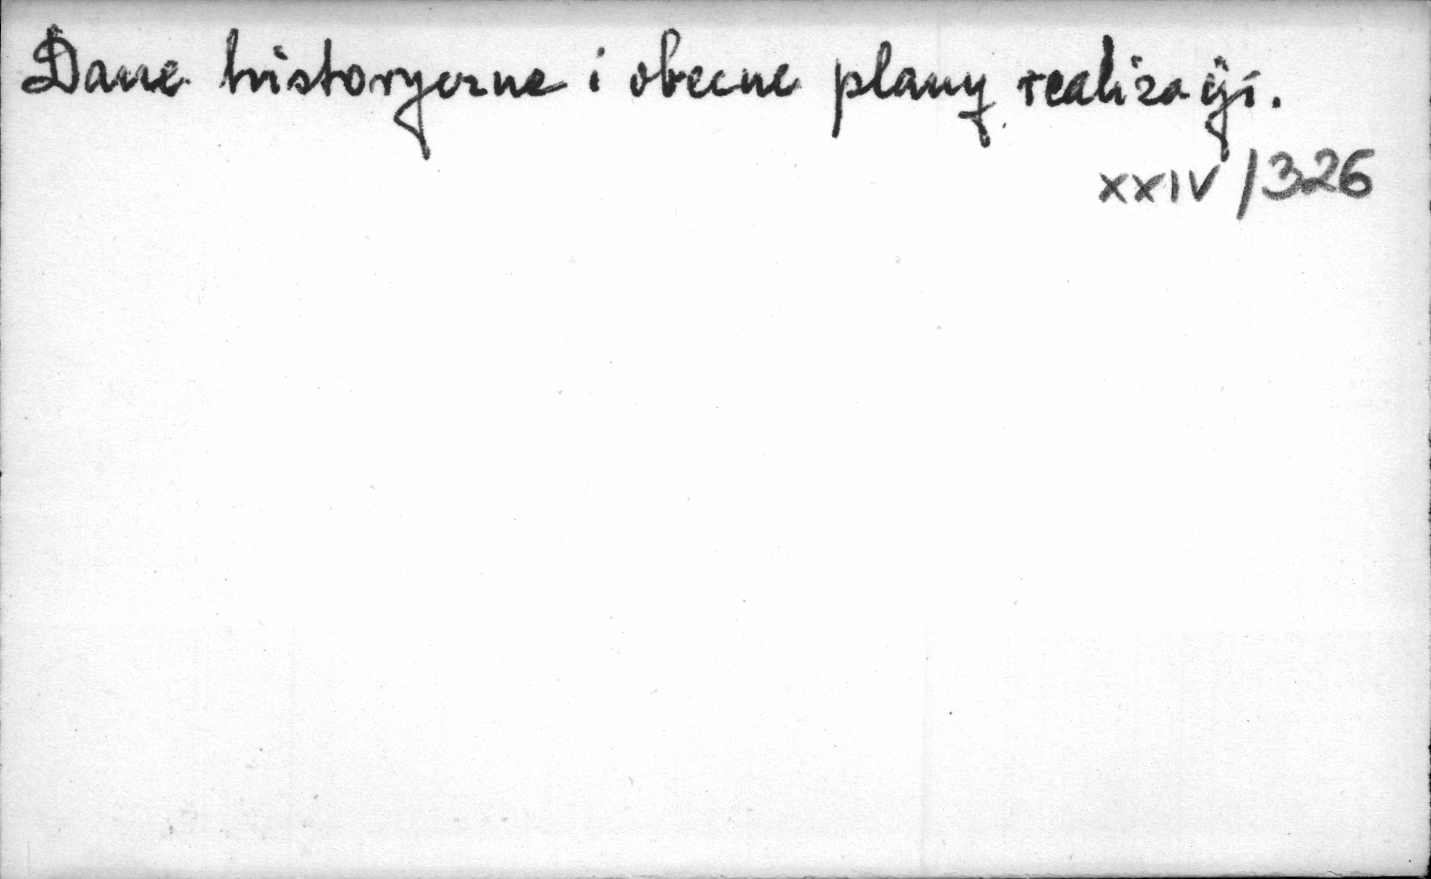 Dane historyczne i obecne plany realizacji.
XXIV/326